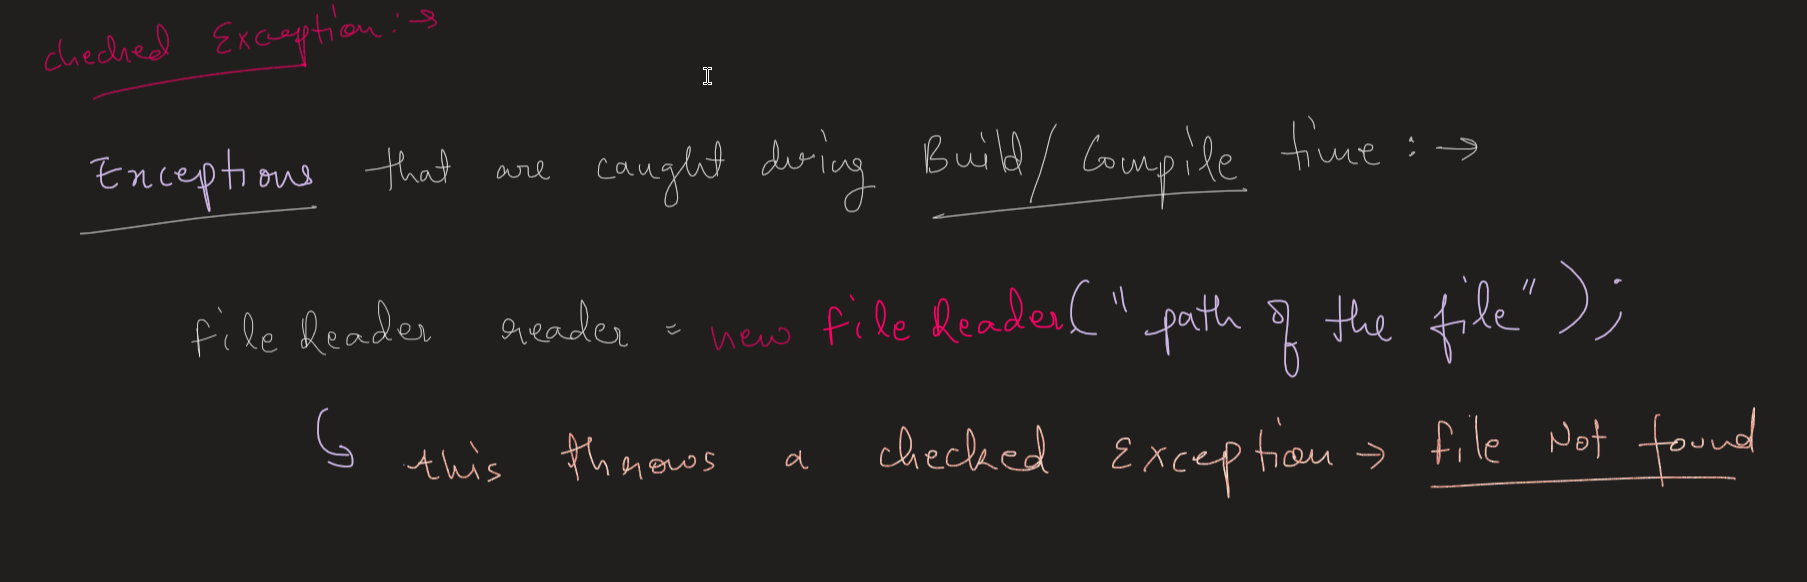 checked Exception :→
Exceptions that are caught during Build/Compile time :→
fileReader reader = new fileReader("path of the file");
this throws a checked Exception → file Not found